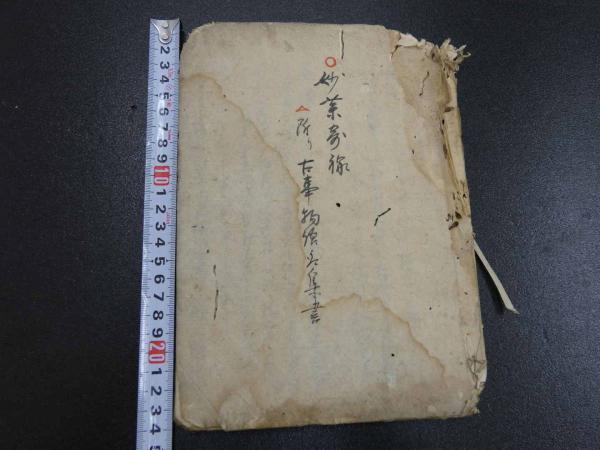 ○妙薬奇録
△附り古事物語分集書
2 3 4 5 6 7 8 9 10 1 2 3 4 5 6 7 8 9 20 1 2 3 4 5